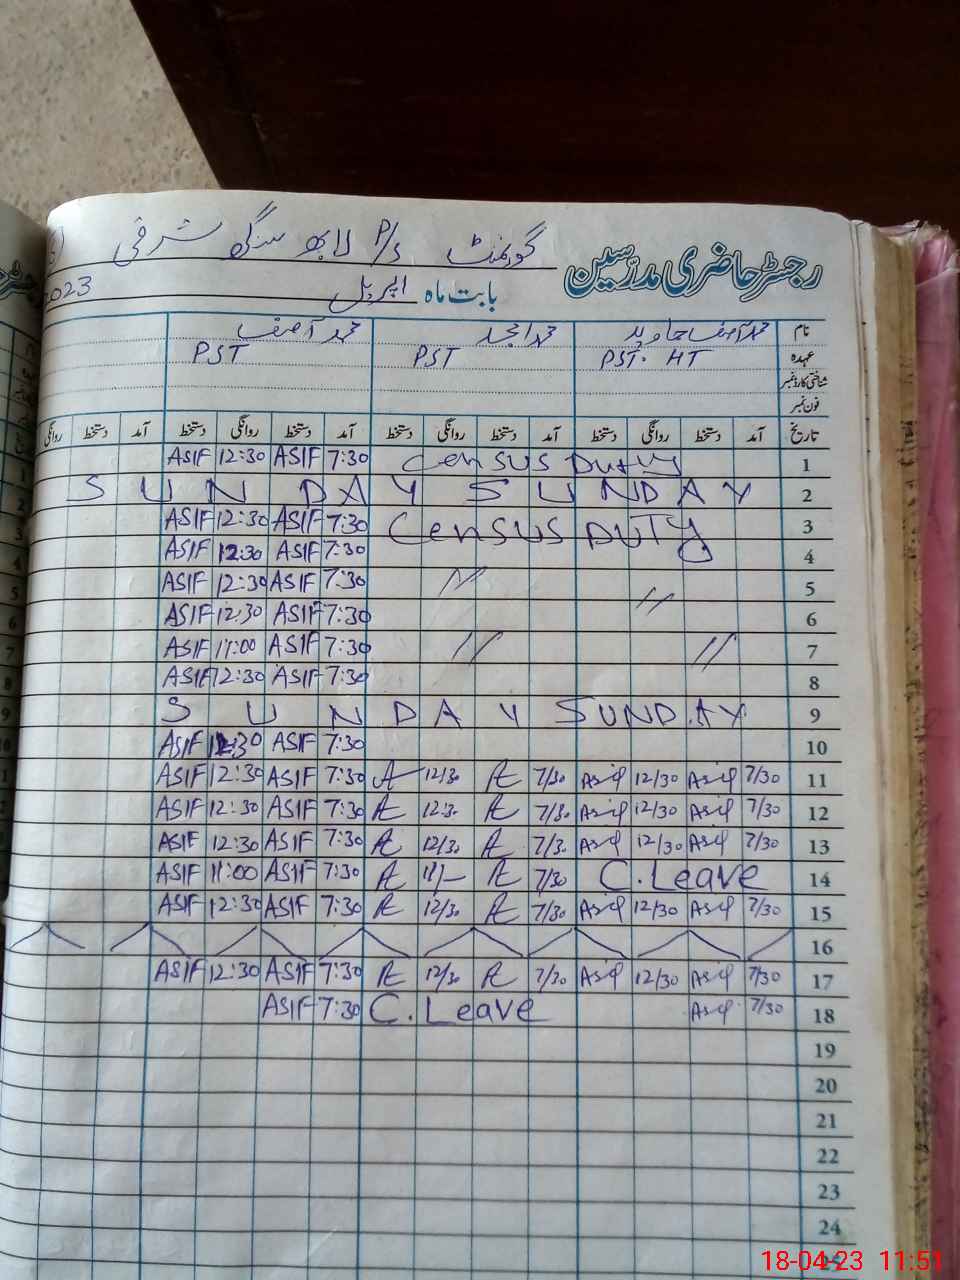 رجسٹر حاضری مدرسین گورنمنٹ P/S لابھ سنگھ شرقی
بابت ماہ اپریل 2023
نام محمد آصف جاوید محمد امجد محمد آصف
عہدہ PST. HT PST PST
شناختی کارڈ نمبر
فون نمبر
تاریخ آمد دستخط روانگی دستخط آمد دستخط روانگی دستخط آمد دستخط روانگی دستخط آمد دستخط روانگی
ASIF 12:30 ASIF 7:30 Census Duty 1
SUNDAY SUNDAY 2
ASIF 12:30 ASIF 7:30 Census DUTY 3
ASIF 12:30 ASIF 7:30 4
ASIF 12:30 ASIF 7:30 // 5
ASIF 12:30 ASIF 7:30 // 6
ASIF 11:00 ASIF 7:30 // // 7
ASIF 12:30 ASIF 7:30 8
SUNDAY SUNDAY 9
ASIF 12:30 ASIF 7:30 10
ASIF 12:30 ASIF 7:30 12/30 7/30 Asif 12/30 Asif 7/30 11
ASIF 12:30 ASIF 7:30 12:30 7/30 Asif 12/30 Asif 7/30 12
ASIF 12:30 ASIF 7:30 12/30 7/30 Asif 12/30 Asif 7/30 13
ASIF 11:00 ASIF 7:30 11/- 7/30 C. Leave 14
ASIF 12:30 ASIF 7:30 12/30 7/30 Asif 12/30 Asif 7/30 15
16
ASIF 12:30 ASIF 7:30 12/30 7/30 Asif 12/30 Asif 7/30 17
ASIF 7:30 C. Leave Asif 7/30 18
19
20
21
22
23
24
25
18-04-23 11:51